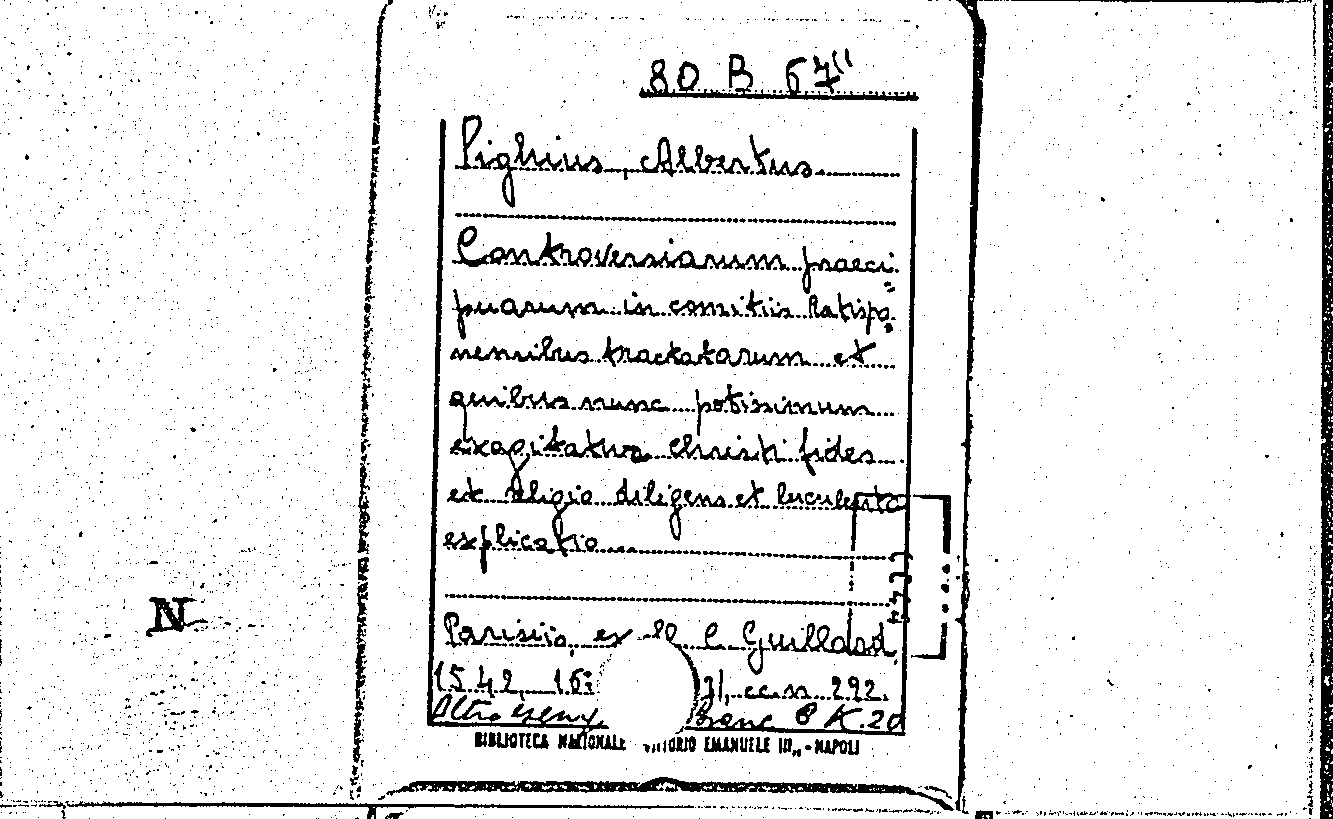 80 B 67"
Pighius, Albertus
Controversiarum praeci=
puarum in comitiis Ratispo=
nensibus tractatarum et
quibus nunc potissimum
exagitatur Christi fides
et religio diligens et luculenta
explicatio...
Parisiis, ex C Guillard,
1542, 16: cc.n 292.
Altro esem. Banc 8 K.20
BIBLIOTECA NAZIONALE VITTORIO EMANUELE III„ - NAPOLI
N